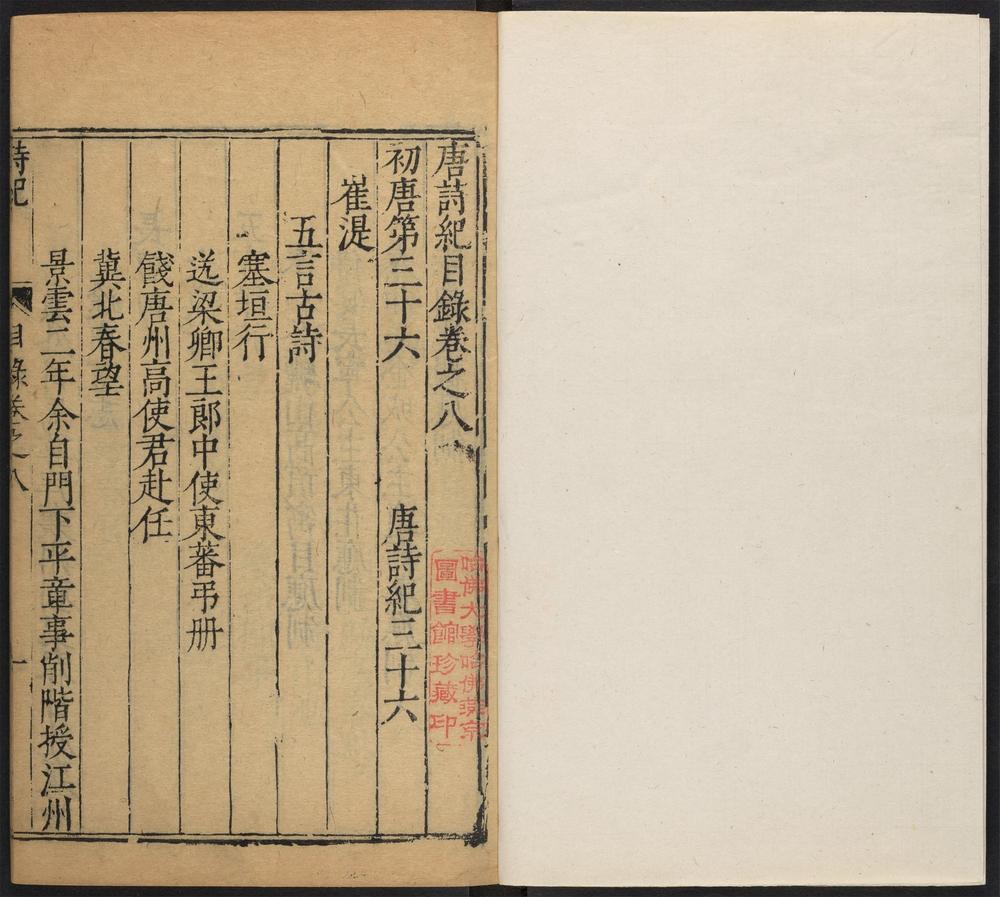 唐詩紀目錄卷之八
初唐第三十六 唐詩紀三十六
崔湜
五言古詩
塞垣行
送梁卿王郎中使東蕃弔册
餞唐州高使君赴任
冀北春望
景雲二年余自門下平章事削階授江州
詩紀 目錄卷之八 一
哈佛大學哈佛燕京
圖書館珍藏印